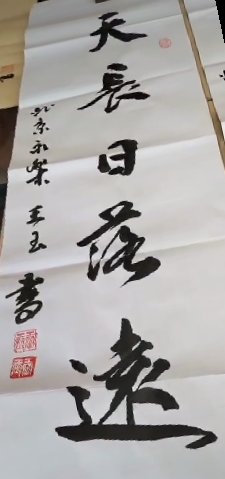 天長日落遠
北京永樂 王玉書